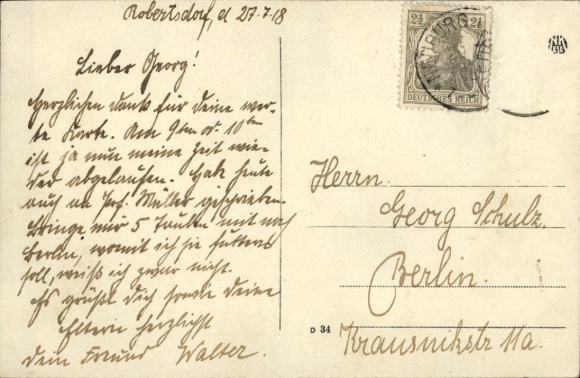 Robertsdorf, d 27.7.18
Lieber Georg!
Herzlichen Dank für Deine wer-
te Karte. Am 9ten od. 10ten
ist ja nun meine Zeit wie-
der abgelaufen. Hab heute
auch an Prof. Müller geschrieben.
Bringe mir 5 Tauben mit nach
Berlin, womit ich sie futtern
soll, weiß ich zwar nicht.
Es grüßt Dich sowie Deine
Eltern herzlichst
Dein Freund Walter.
2½ 2½
DEUTSCHES REICH
Herrn
Georg Schulz
Berlin.
Krausnikstr 11a.
D 34